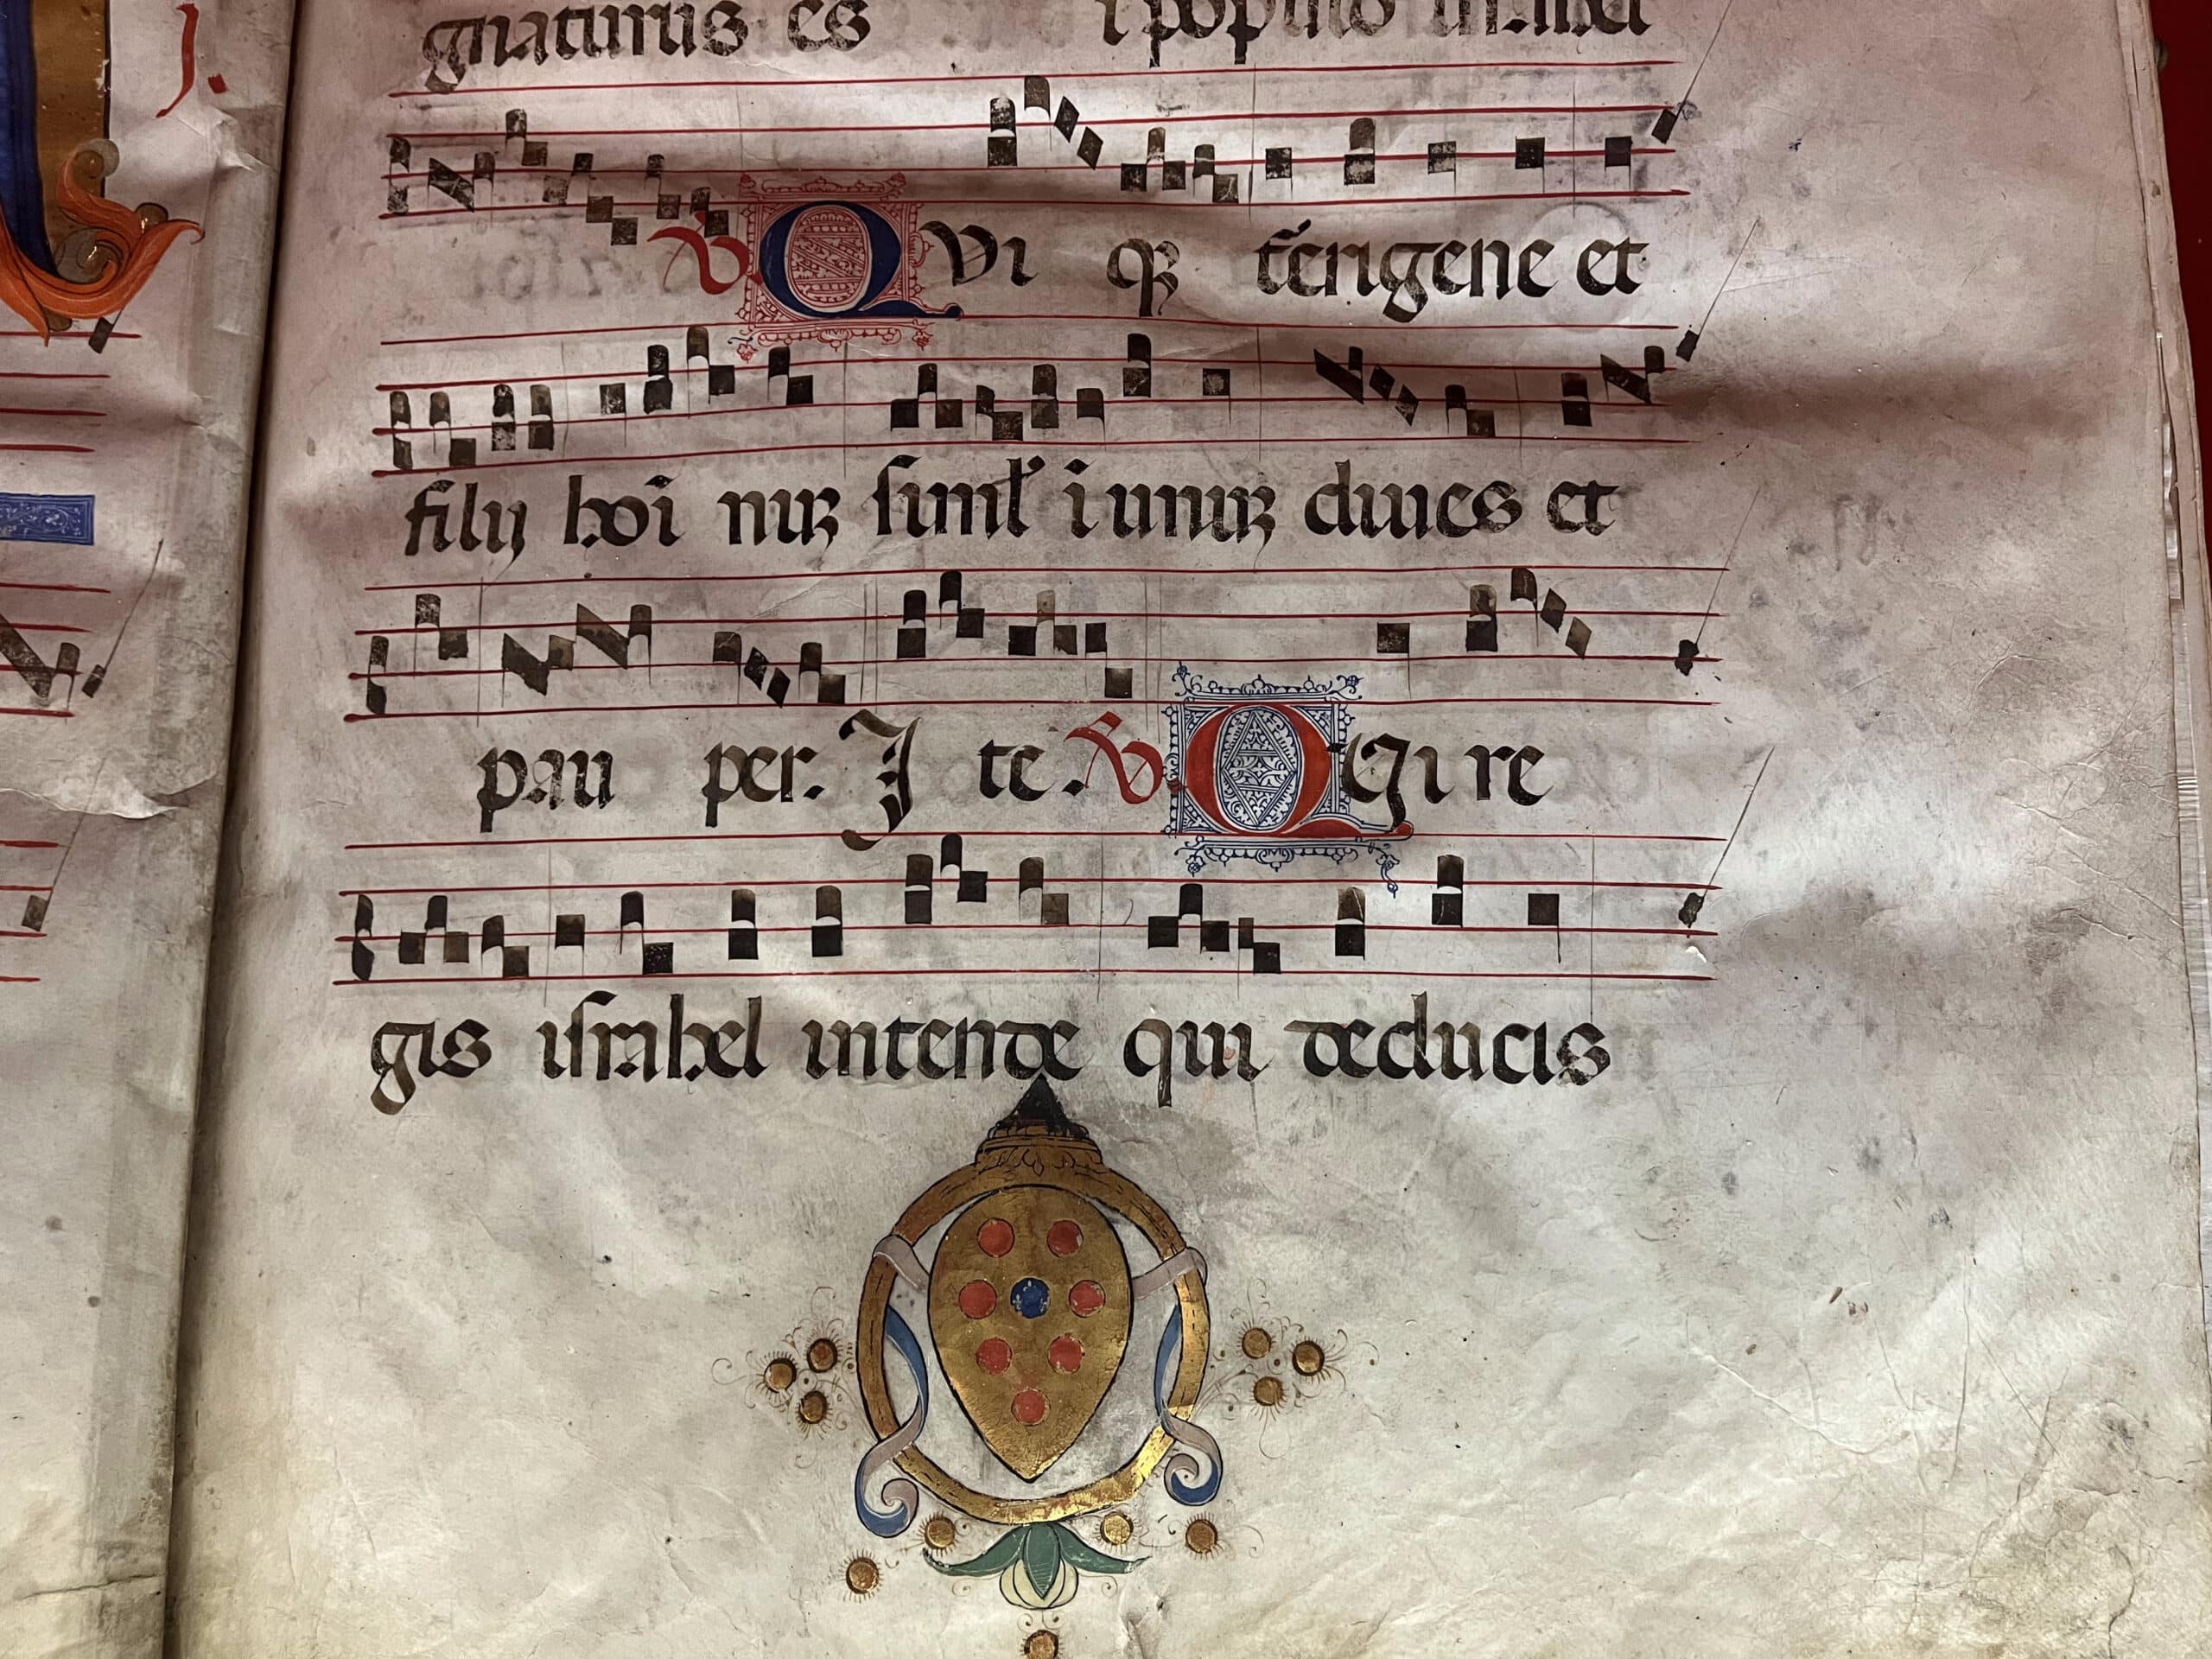 J.
gnaturus es i populo israel
℣. QVi qꝫ terrigene et
filij hoi nuꝫ siml' i unuꝫ diues et
pau per. J te. ℣. Qui re
gis israhel intende qui deducis